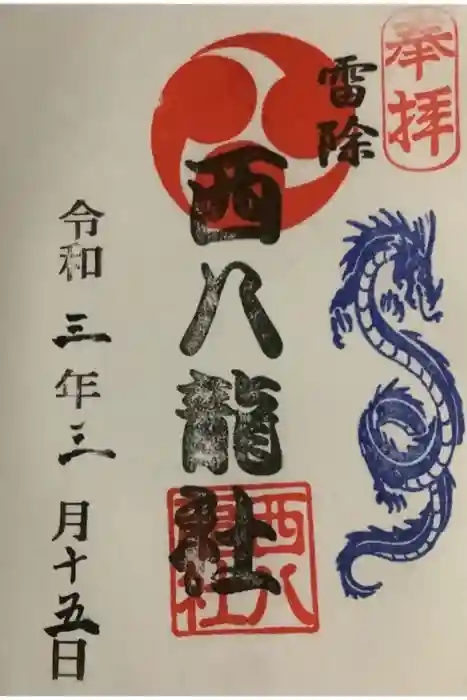 奉拝
雷除
西八龍社
西八龍社
令和三年三月十五日